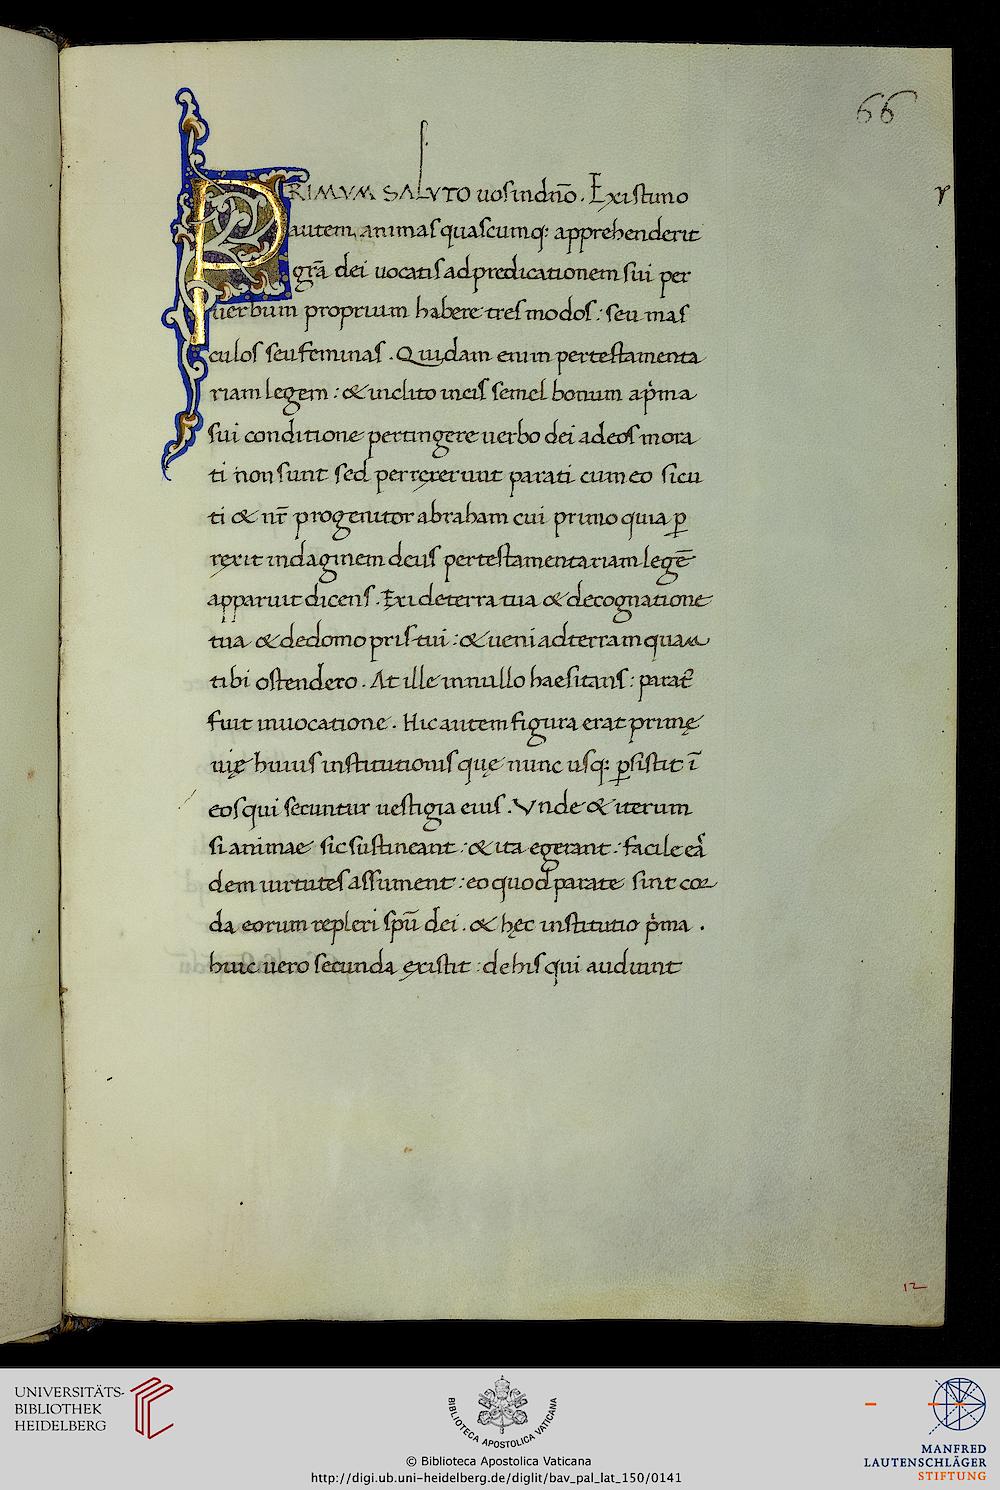 66
PRIMVM SALVTO uos in dño. Existimo
autem animas quascumq: apprehenderit
grã dei uocatis ad predicationem sui per
uerbum proprium habere tres modos: seu mas
culos seu feminas. Quidam enim per testamenta
riam legem: & inclito in eis semel bonum a prima
sui conditione pertingere uerbo dei ad eos mora
ti non sunt sed perrexerunt parati cum eo sicu
ti & nr̃ progenitor abraham cui primo quia p
rexit indaginem deus per testamentariam legẽ
apparuit dicens. Exi de terra tua & de cognatione
tua & de domo pris tui: & ueni ad terram quam
tibi ostendero. At ille in nullo haesitans: parat
fuit in uocatione. Hic autem figura erat primę
uię huius institutionis quę nunc usq: psistit ĩ
eos qui secuntur uestigia eius. Vnde & iterum
si animae sic sustineant: & ita egerant: facile ea
dem uirtutes assument: eo quod paratę sint cor
da eorum repleri spũ dei. & hęc institutio prima.
huic uero secunda existit: de his qui audiunt
12
UNIVERSITÄTS-
BIBLIOTHEK
HEIDELBERG
BIBLIOTECA APOSTOLICA VATICANA
© Biblioteca Apostolica Vaticana
http://digi.ub.uni-heidelberg.de/diglit/bav_pal_lat_150/0141
MANFRED
LAUTENSCHLÄGER
STIFTUNG